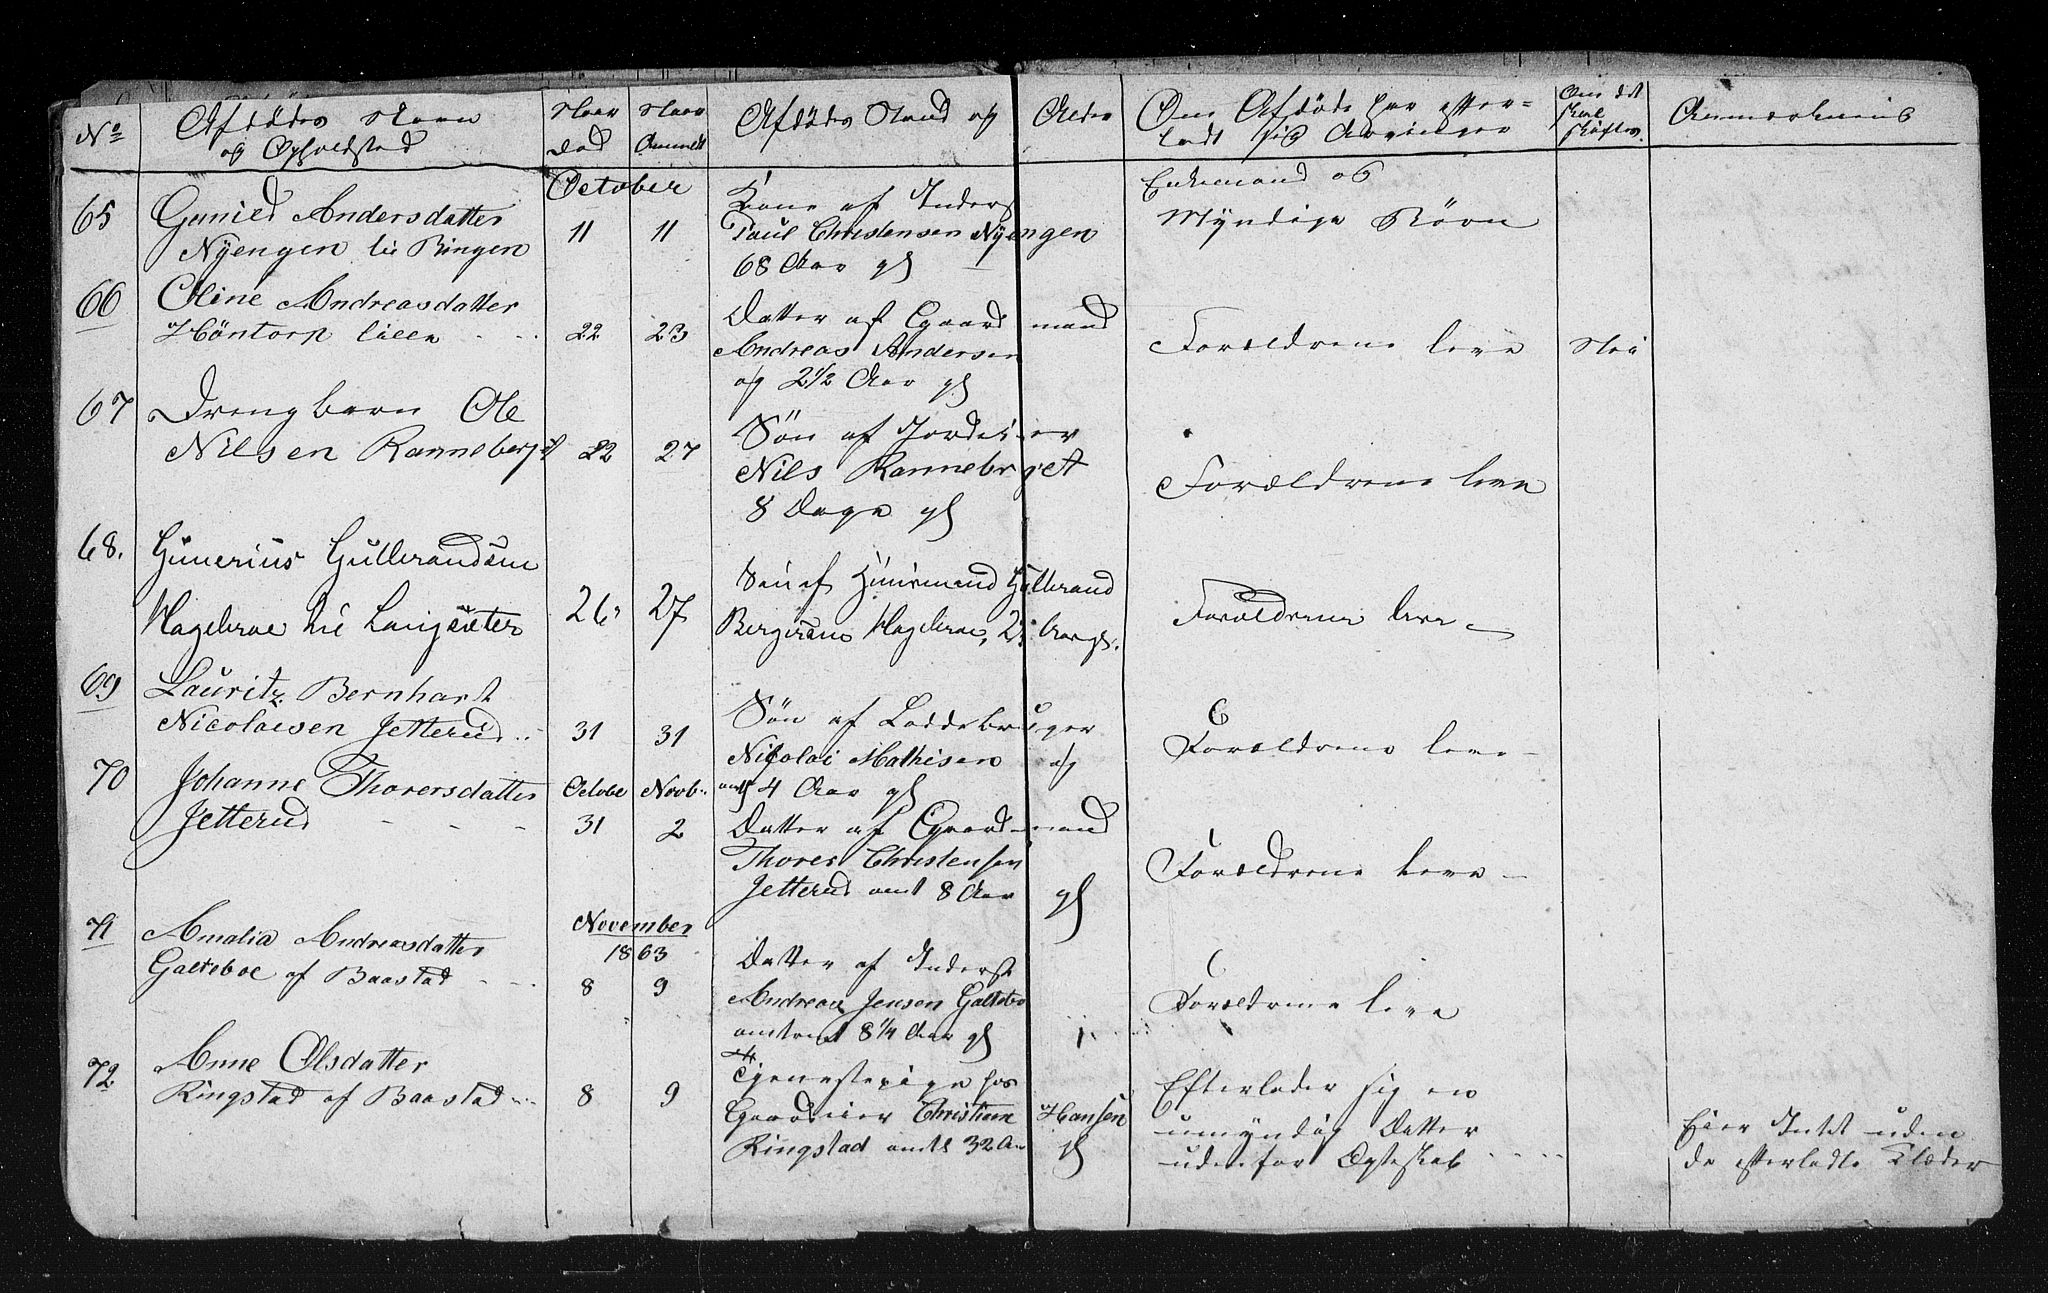 No
Afdødes Navn
og Opholdsted
Naar
død
Naar
Anmeldt
Afdødes Stand og
Alder
Om Afdøde har efter-
ladt sig Arvinger
Om det
skal
skiftes
Anmærkning
October
65
Gunild Andersdatter
Nyengen
11
11
Kone af Inderst
Paul Christensen Nyengen
68 Aar gl
Enkemand og
Myndige Børn
66
Oline Andreasdatter
Höntorp lille
22
23
Datter af Gaardmand
Andreas Andersen
og 2 1/2 Aar gl
Forældrene leve
Nei
67
Drengbarn Ole
Nilsen Ranneberget
22
27
Søn af
Nils Ranneberget
8 Dage gl
Forældrene leve
68.
Gunerius Gulbrandsen
Hagebroe Langsæter
26
27
Søn af Huusmand Gulbrand
Bergersen Hagebroe, Aar gl.
Forældrene leve
69
Lauritz Bernhart
Nicolaisen Jetterud
31
31
Søn af Loddebruger
Nicolai Mathisen og
4 Aar gl
Forældrene leve
70
Johanne Thoresdatter
Jetterud
Octobe
31
Novb
2
Datter af Gaardmand
Thores Christensen
Jetterud omt 8 Aar gl
Forældrene leve
71
Amalia Andreasdatter
Galteboe af Baastad
November
1863
8
9
Datter af Inderst
Andreas Jensen Galtebo
omtrent 8 1/4 Aar gl
Forældrene leve
72
Anne Olsdatter
Ringstad af Baastad
8
9
Tjenestepige hos
Gaardeier Christian Hansen
Ringstad omt 32 Aar gl
Efterlader sig en
umyndig Datter
udenfor Ægteskab
Eier Intet uden
de efterladte Klæder